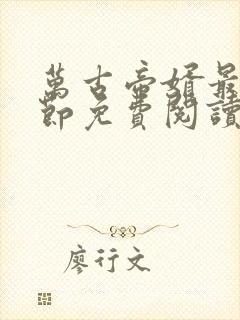 萬古帝婿最
節免費閱讀
廖行文